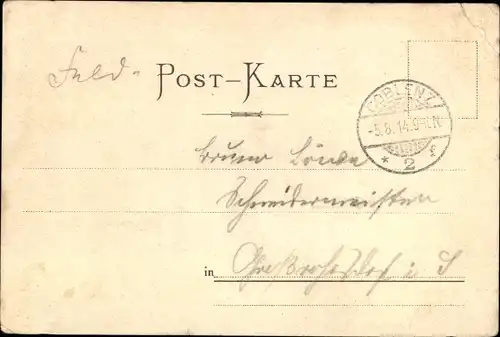 Feld- POST-KARTE
COBLENZ
-5.8.14.9-10.N.
* 2 f
Bruno Löwe
Schneidermeister
in Großröhrsdorf i. S